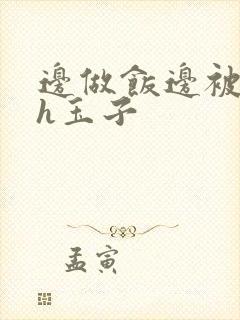 邊做飯邊被
h玉子
孟寅